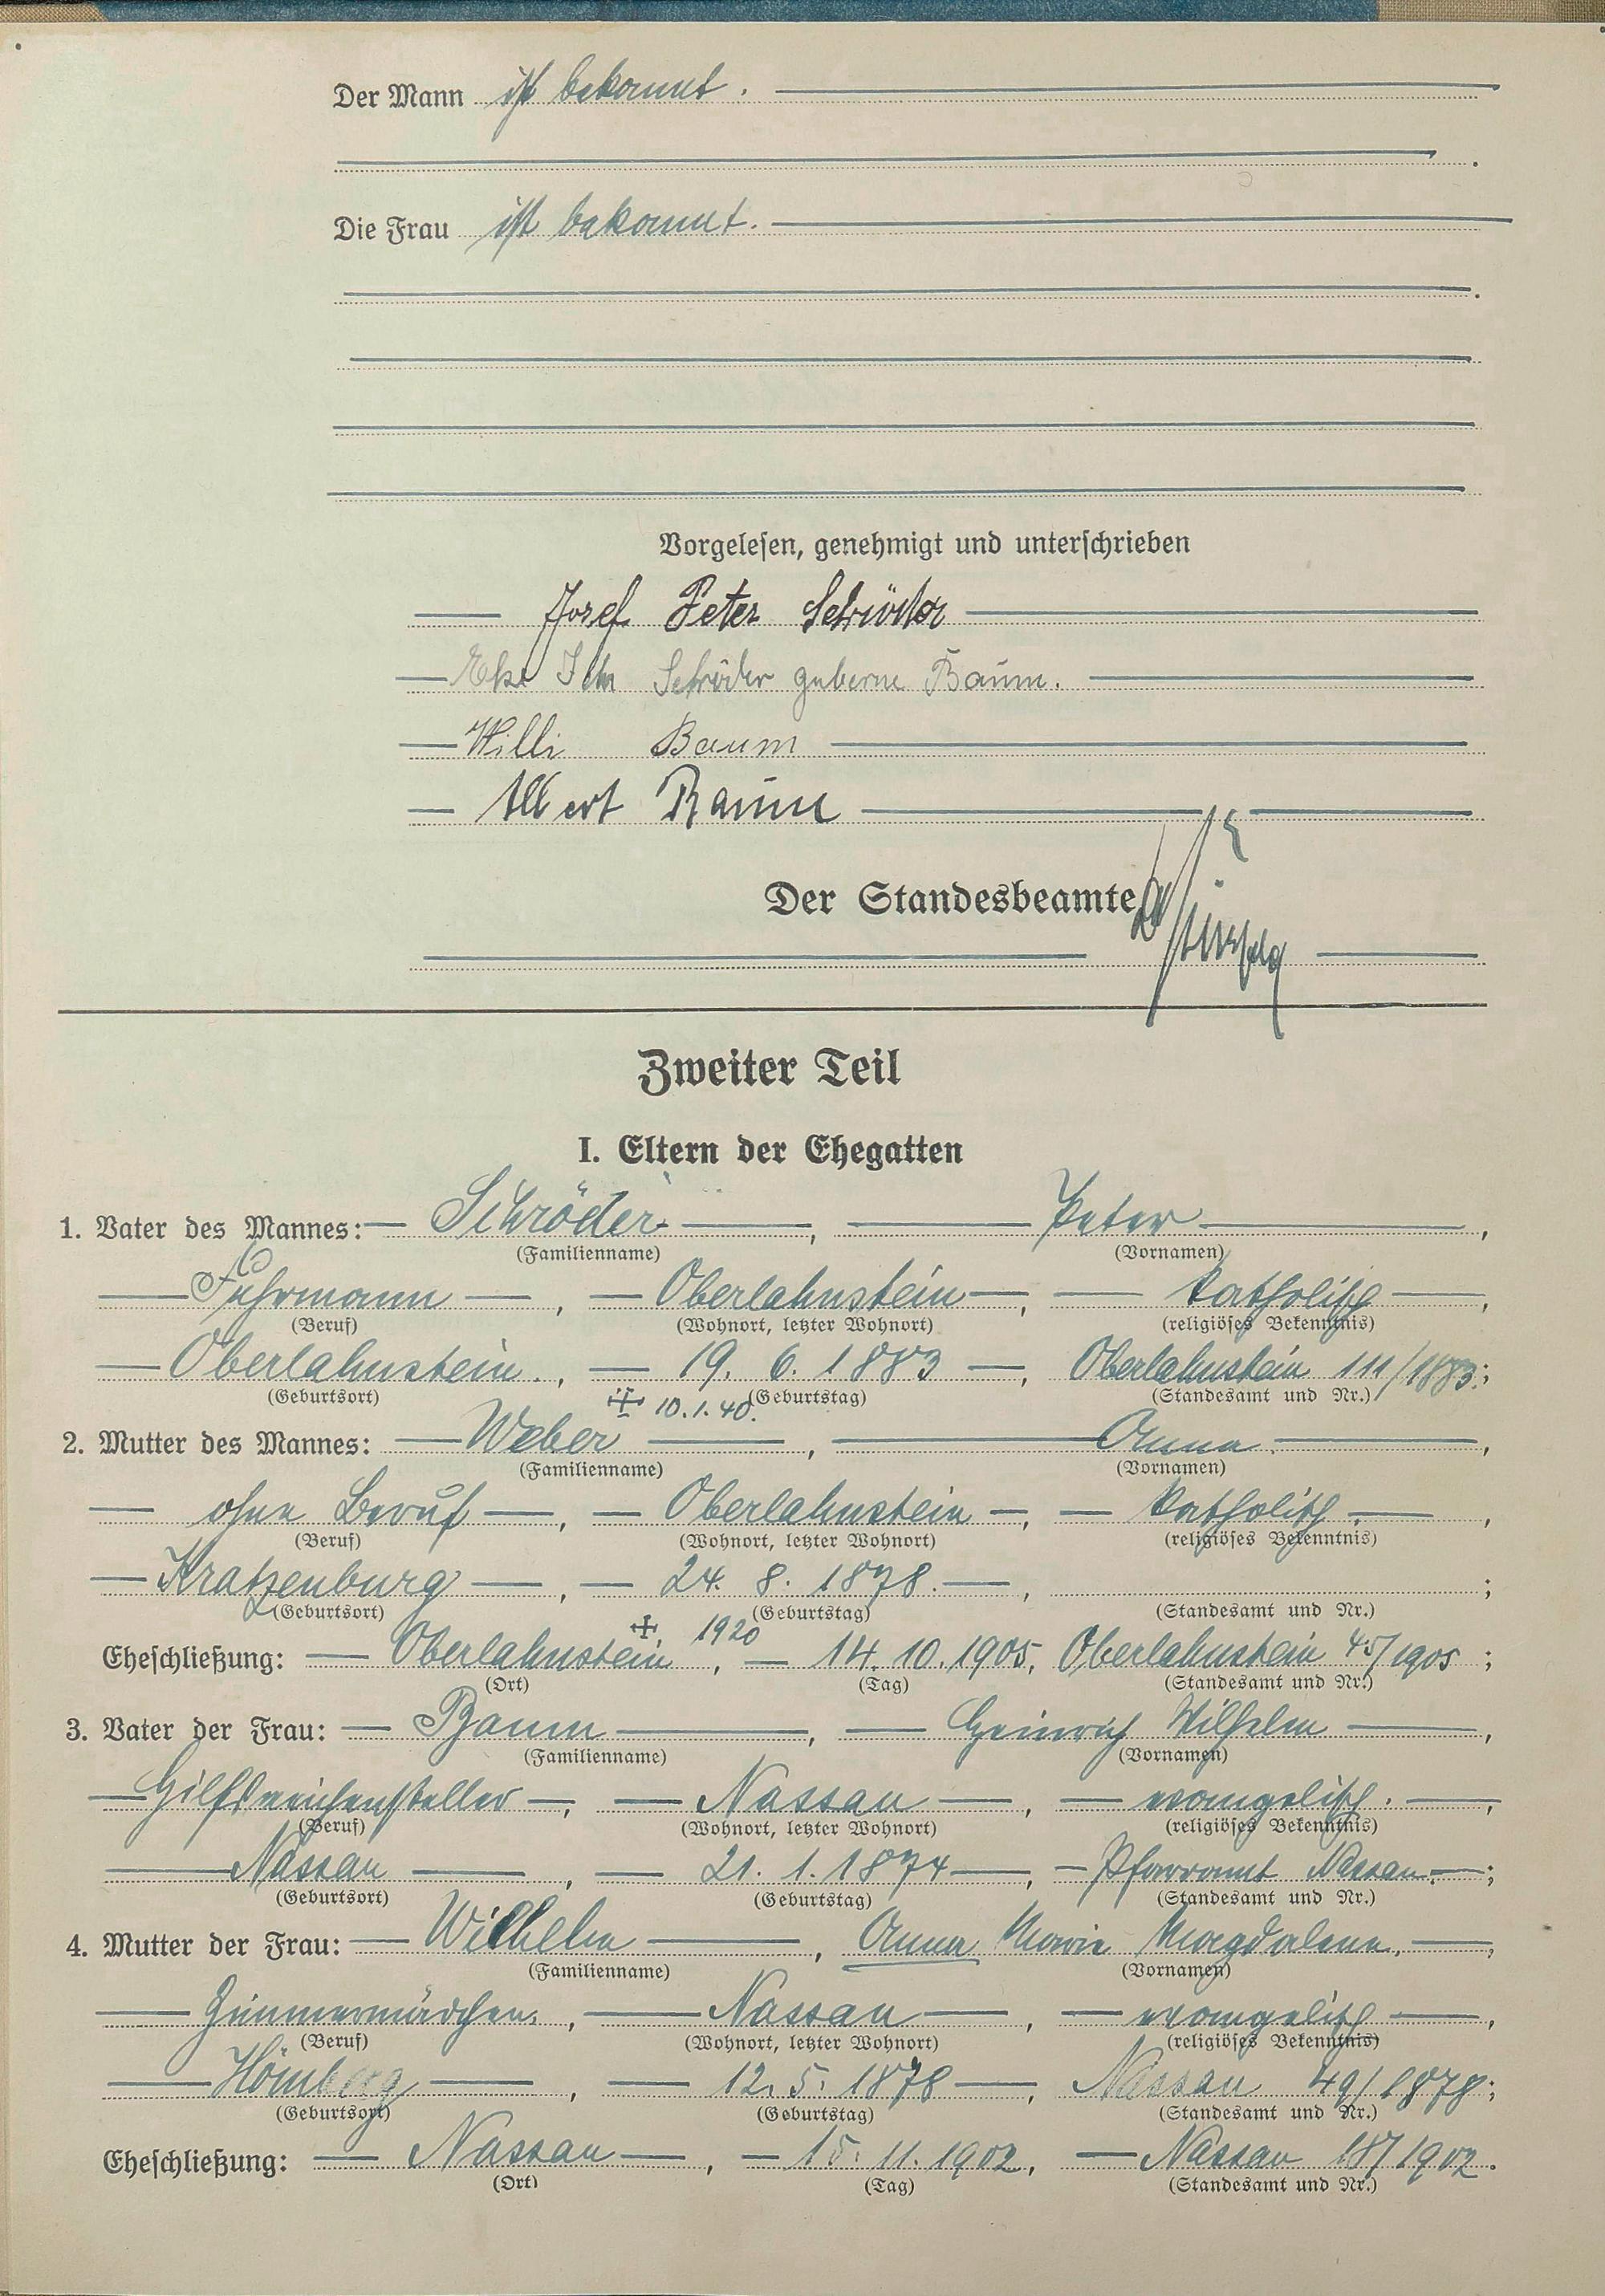 Der Mann ist bekannt.
Die Frau ist bekannt.
Vorgelesen, genehmigt und unterschrieben
Josef Peter Schröder
Schröder geborne Baum.
Willi Baum
Albert Baum
Der Standesbeamte
Zweiter Teil
I. Eltern der Ehegatten
1. Vater des Mannes: Schröder, Peter,
(Familienname) (Vornamen)
Fuhrmann, Oberlahnstein, katholisch,
(Beruf) (Wohnort, letzter Wohnort) (religiöses Bekenntnis)
Oberlahnstein, 19. 6. 1883, Oberlahnstein 111/1883;
(Geburtsort) (Geburtstag) (Standesamt und Nr.)
10.1.40.
2. Mutter des Mannes: Weber, Anna,
(Familienname) (Vornamen)
ohne Beruf, Oberlahnstein, katholisch,
(Beruf) (Wohnort, letzter Wohnort) (religiöses Bekenntnis)
Kratzenburg, 24. 8. 1878.,;
(Geburtsort) (Geburtstag) (Standesamt und Nr.)
1920
Eheschließung: Oberlahnstein, 14. 10. 1905, Oberlahnstein 45/1905;
(Ort) (Tag) (Standesamt und Nr.)
3. Vater der Frau: Baum, Heinrich Wilhelm,
(Familienname) (Vornamen)
Hilfsweichensteller, Nassau, evangelisch.,
(Beruf) (Wohnort, letzter Wohnort) (religiöses Bekenntnis)
Nassau, 21. 1. 1874, Pfarramt Nassau.;
(Geburtsort) (Geburtstag) (Standesamt und Nr.)
4. Mutter der Frau: Wilhelm, Anna Marie Magdalene,
(Familienname) (Vornamen)
Zimmermädchen, Nassau, evangelisch,
(Beruf) (Wohnort, letzter Wohnort) (religiöses Bekenntnis)
Hömberg, 12. 5. 1878, Nassau 49/1878;
(Geburtsort) (Geburtstag) (Standesamt und Nr.)
Eheschließung: Nassau, 15. 11. 1902, Nassau 18/1902.
(Ort) (Tag) (Standesamt und Nr.)